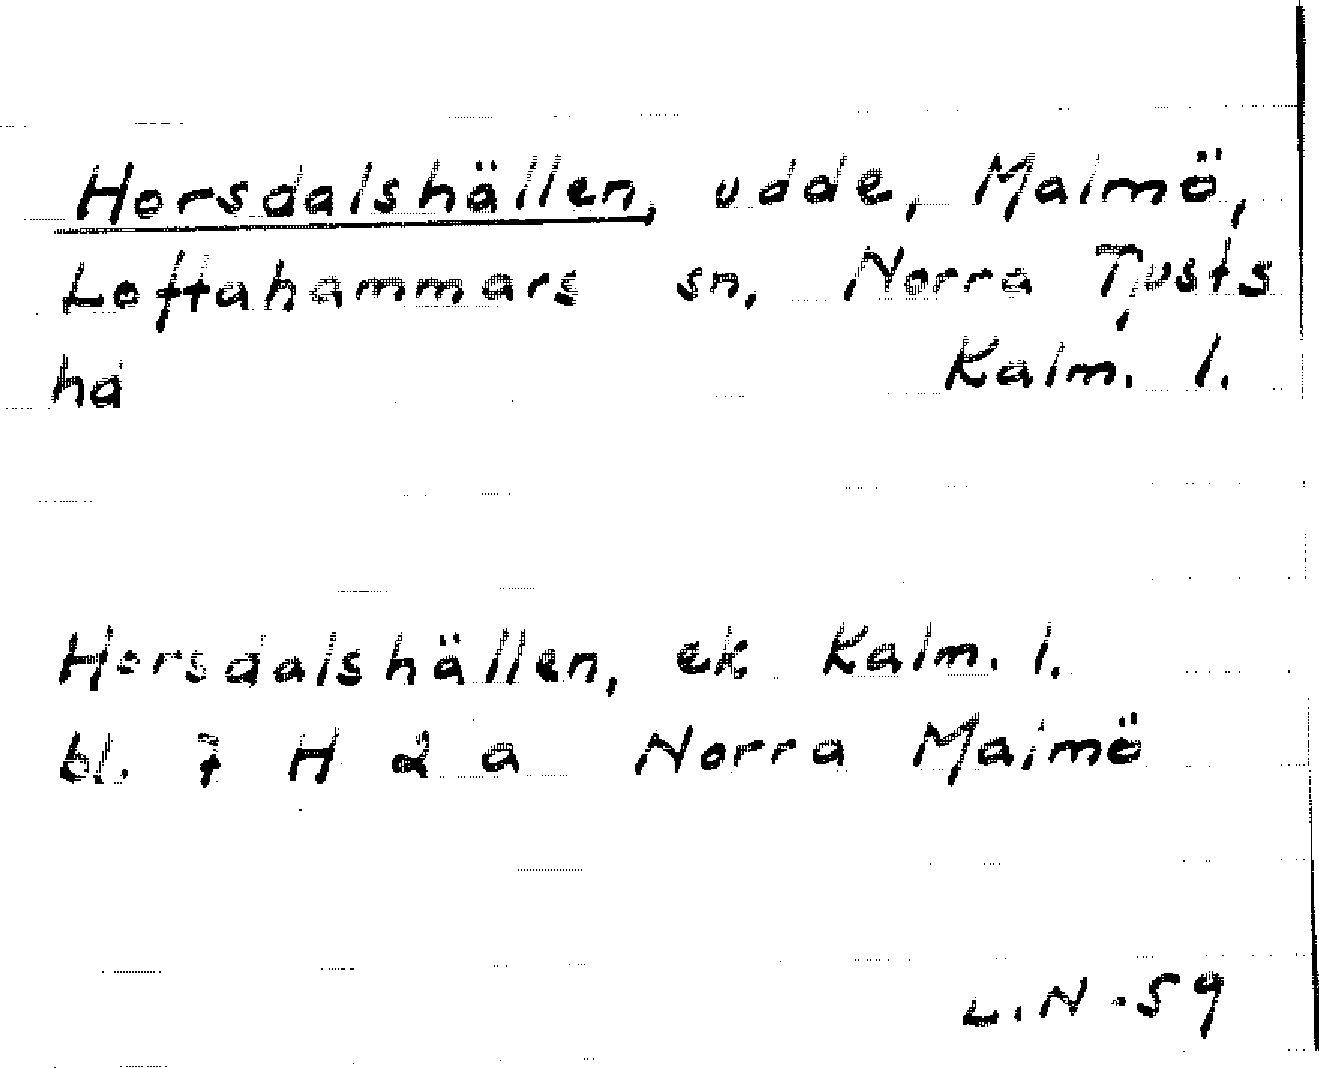 Horsdalshällen, udde, Malmö,
Loftahammars sn, Norra Tjusts
hd Kalm. l.
Horsdalshällen, ek Kalm. l.
bl. 7 H 2 a Norra Malmö
L.N.59